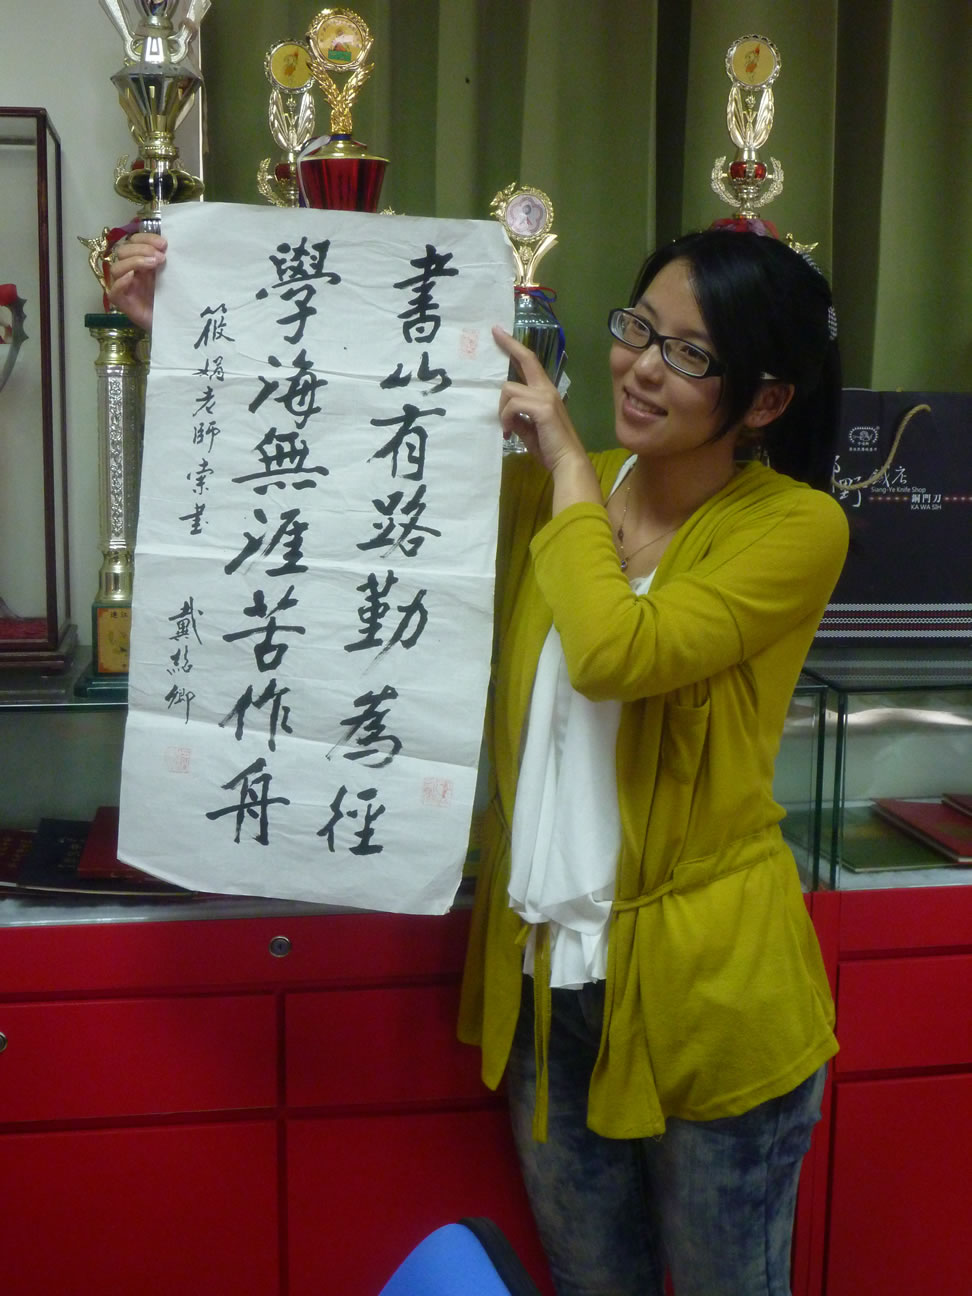 書山有路勤為徑
學海無涯苦作舟
筱娟老師索書
戴紹卿
Siang-Ye Knife Shop
銅門刀
KA WA SIH